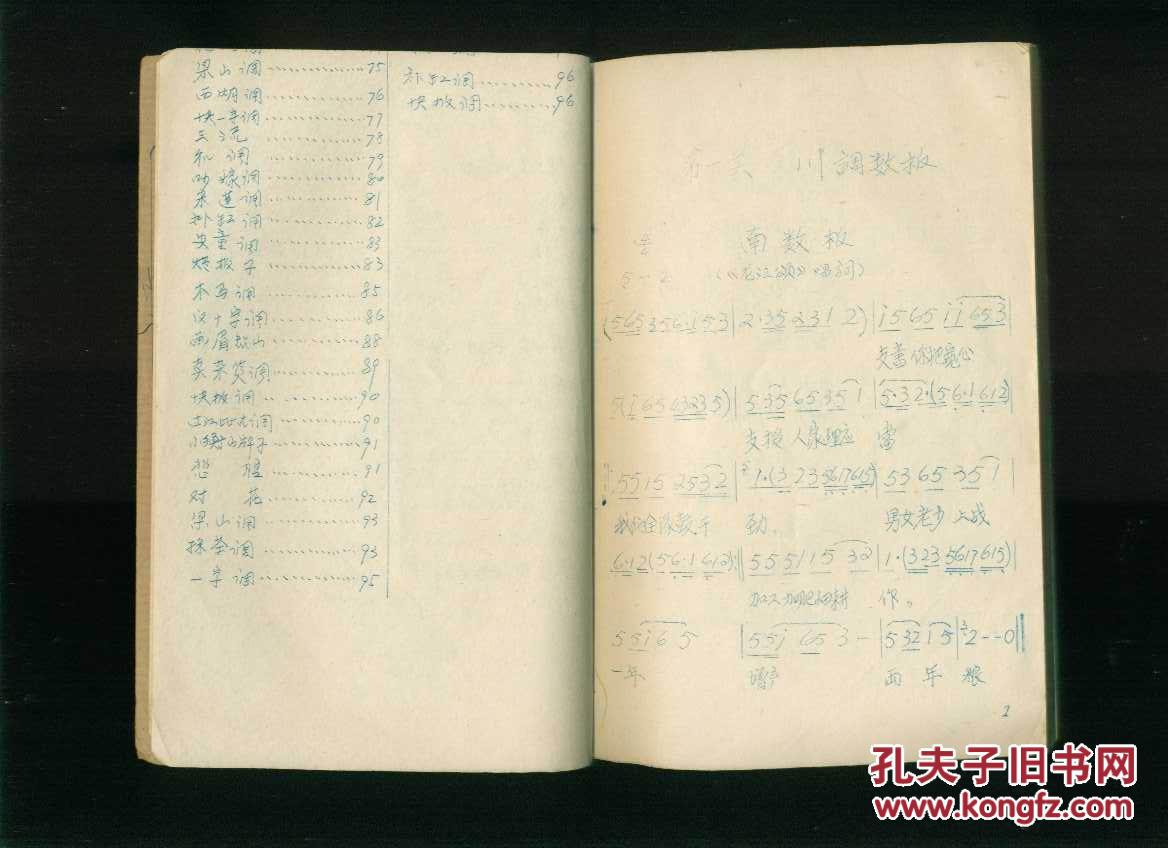 梁山调…………75
西湖调…………76
快一字调…………77
三流…………78
和调…………79
吵嫁调…………80
采莲调…………81
补缸调…………82
…………83
板子…………83
木马调…………85
汉十字调…………86
画眉山…………88
卖杂货调…………89
块板调…………90
调…………90
小牌子…………91
悲…………91
对花…………92
梁山调…………93
採茶调…………93
一字调…………95
补缸调…………96
块板调…………96
第一类 川調数板
南数板
5-2
(《龙江颂》唱词)
(565356·153|2·352312)|i565ii653|
支書你把宽心
5(i6563235)|53565351|5·32·(56·1612)|
支援人家理应 当
|55152532|1·(3235617615)|5365351|
我们全队鼓干 劲, 男女老少上战
6·12(56·1612)|55511532|1·(3235617615)|
加工加肥细耕 作。
55i65|55i653-|532i5|2--0‖
一年 增产 两年粮
1
孔夫子旧书网
www.kongfz.com